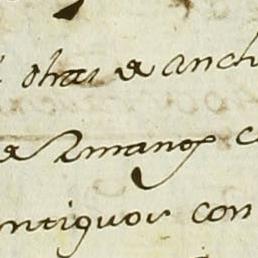 otras de anch
de Romanos c
ntiguos con